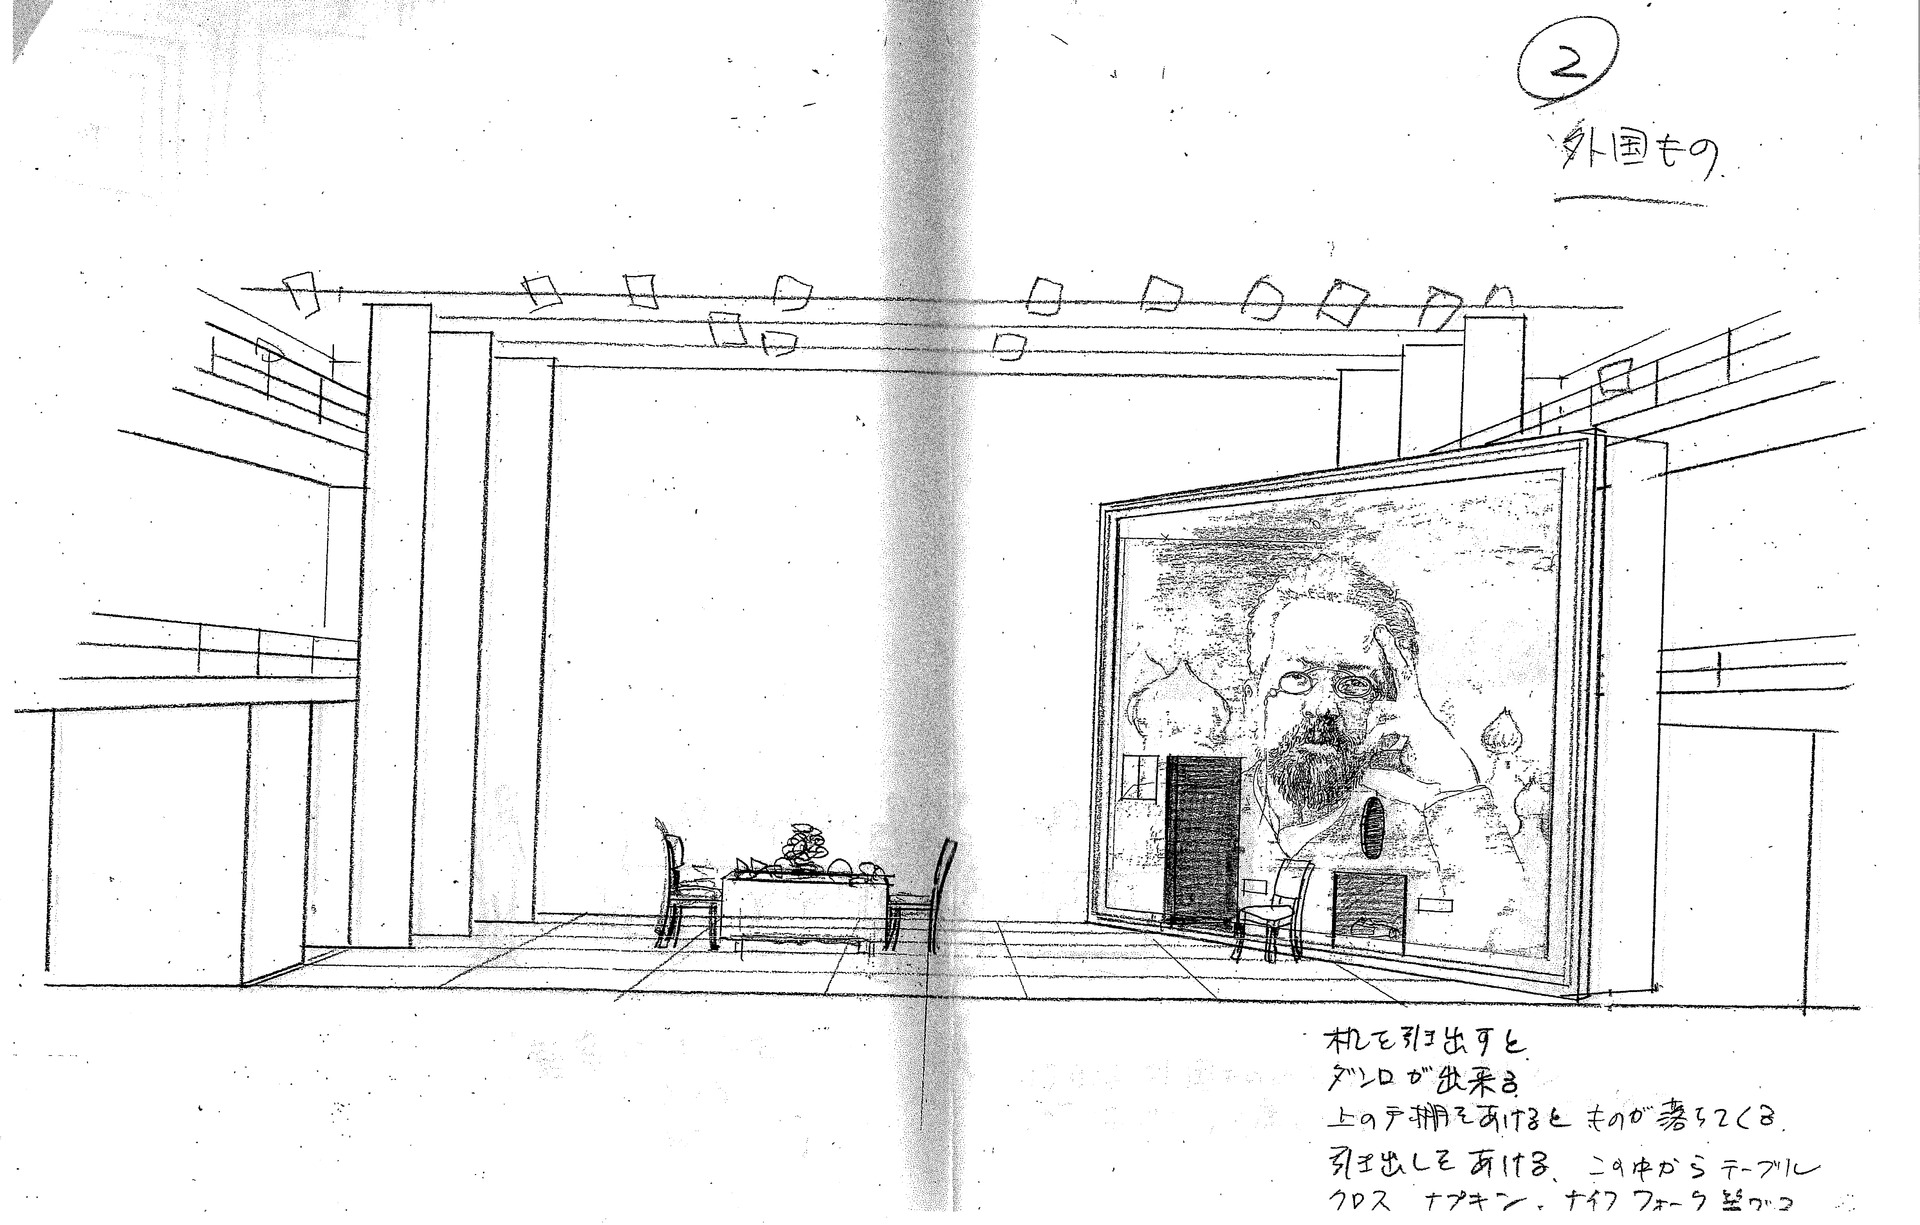 2
外国もの
机を引き出すと
ダンロが出来る
上の戸棚をあけると ものが落ちてくる.
引き出しをあける、この中から テーブル
クロス ナプキン、ナイフ フォーク